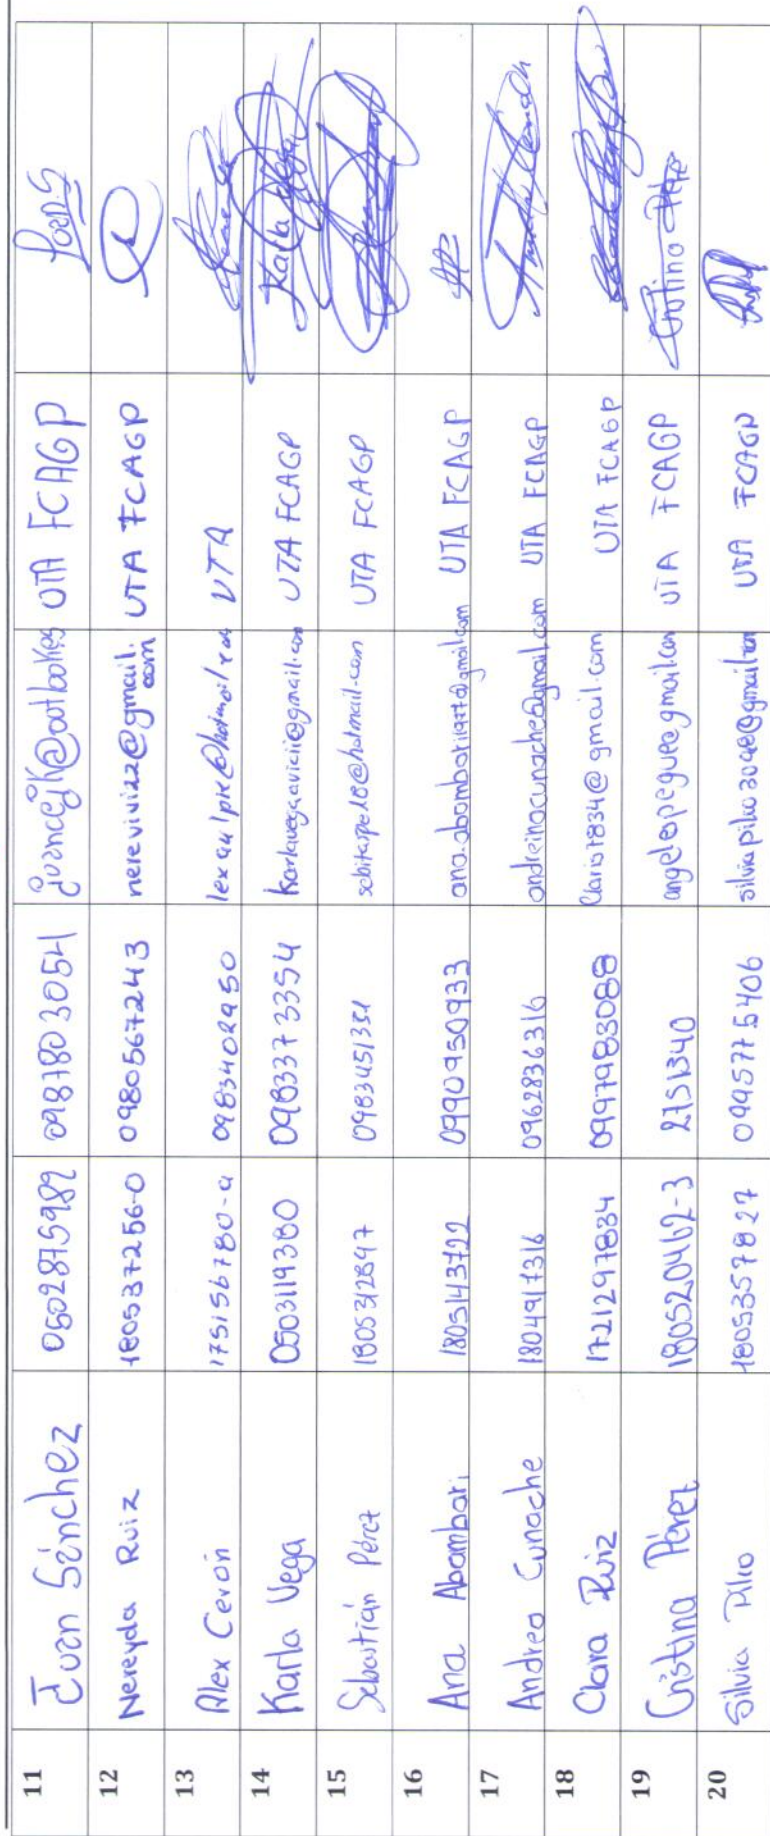 11 Juan Sánchez 0502875982 0987803054 juancejk@outlook.es UTA FCAGP Juan S
12 Nereyda Ruiz 180537256-0 0980567243 nerevivi22@gmail.com UTA FCAGP
13 Alex Cerón 175156780-9 0983402950 UTA
14 Karla Vega 0503119380 0983373354 karlavegaavicii@gmail.com UTA FCAGP Karla Vega
15 Sebastián Pérez 1805312847 0983451351 sebitaspe18@hotmail.com UTA FCAGP
16 Ana Abambari 1805143722 0990950933 UTA FCAGP
17 Andrea Cunache 1804917316 0962836316 andreinacunache@gmail.com UTA FCAGP
18 Clara Ruiz 1721297834 0997983088 Claris7834@gmail.com UTA FCAGP
19 Cristina Pérez 180520462-3 2751340 UTA FCAGP Cristina Pérez
20 Silvia Pilco 1805357827 0995775406 silviapilco3048@gmail.com UTA FCAGP